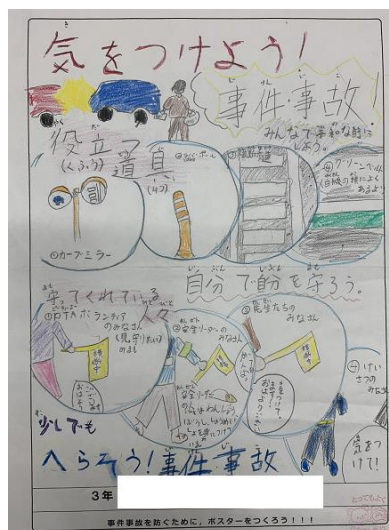 気をつけよう！
事件・事故
みんなで平和な町に
しよう。
役立つ道具
(くふう) (4つ)
①カーブミラー
②ラバーポール
③横断歩道
④グリーンベルト
自分で自分を守ろう。
守ってくれている人々
①PTAボランティア
のみなさん
(見守りたい)
②安全リーダーの
みなさん
③先生たちの
みなさん
④けい
さつの
みなさん
おはよう
ございます
気を
つけて！
少しでも
へらそう！事件・事故
3年
事件事故を防ぐために，ポスターをつくろう！！！